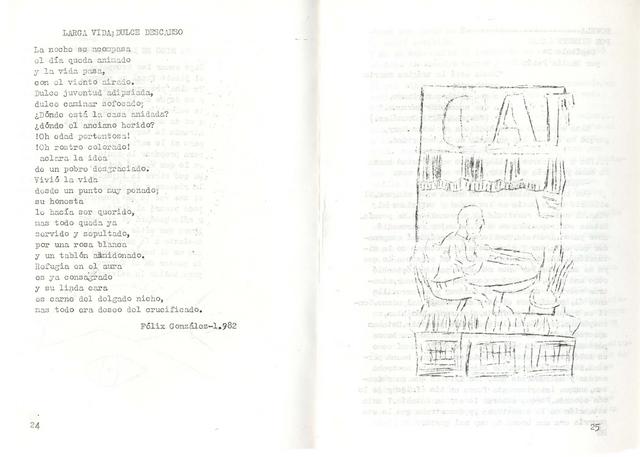 LARGA VIDA;DULCE DESCANSO
La noche se acompasa
el día queda animado
y la vida pasa,
con el viento airado.
Dulce juventud adipsiada,
dulce caminar sofocado;
¿Dónde está la casa anidada?
¿dónde el anciano herido?
!Oh edad portentosa!
!Oh rostro colorado!
aclara la idea
de un pobre desgraciado.
Vivió la vida
desde un punto muy penado;
su honesta
le hacía ser querido,
mas todo queda ya
servido y sepultado,
por una rosa blanca
y un tablón almidonado.
Refugia en el aura
es ya consagrado
y su linda cara
es carne del delgado nicho,
mas todo era deseo del crucificado.
Félix González-1.982
24
CAT
25